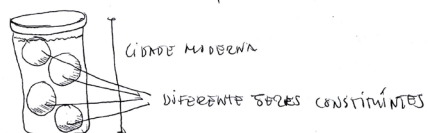 CIDADE MODERNA
DIFERENTE SERES CONSTITUÍNTES